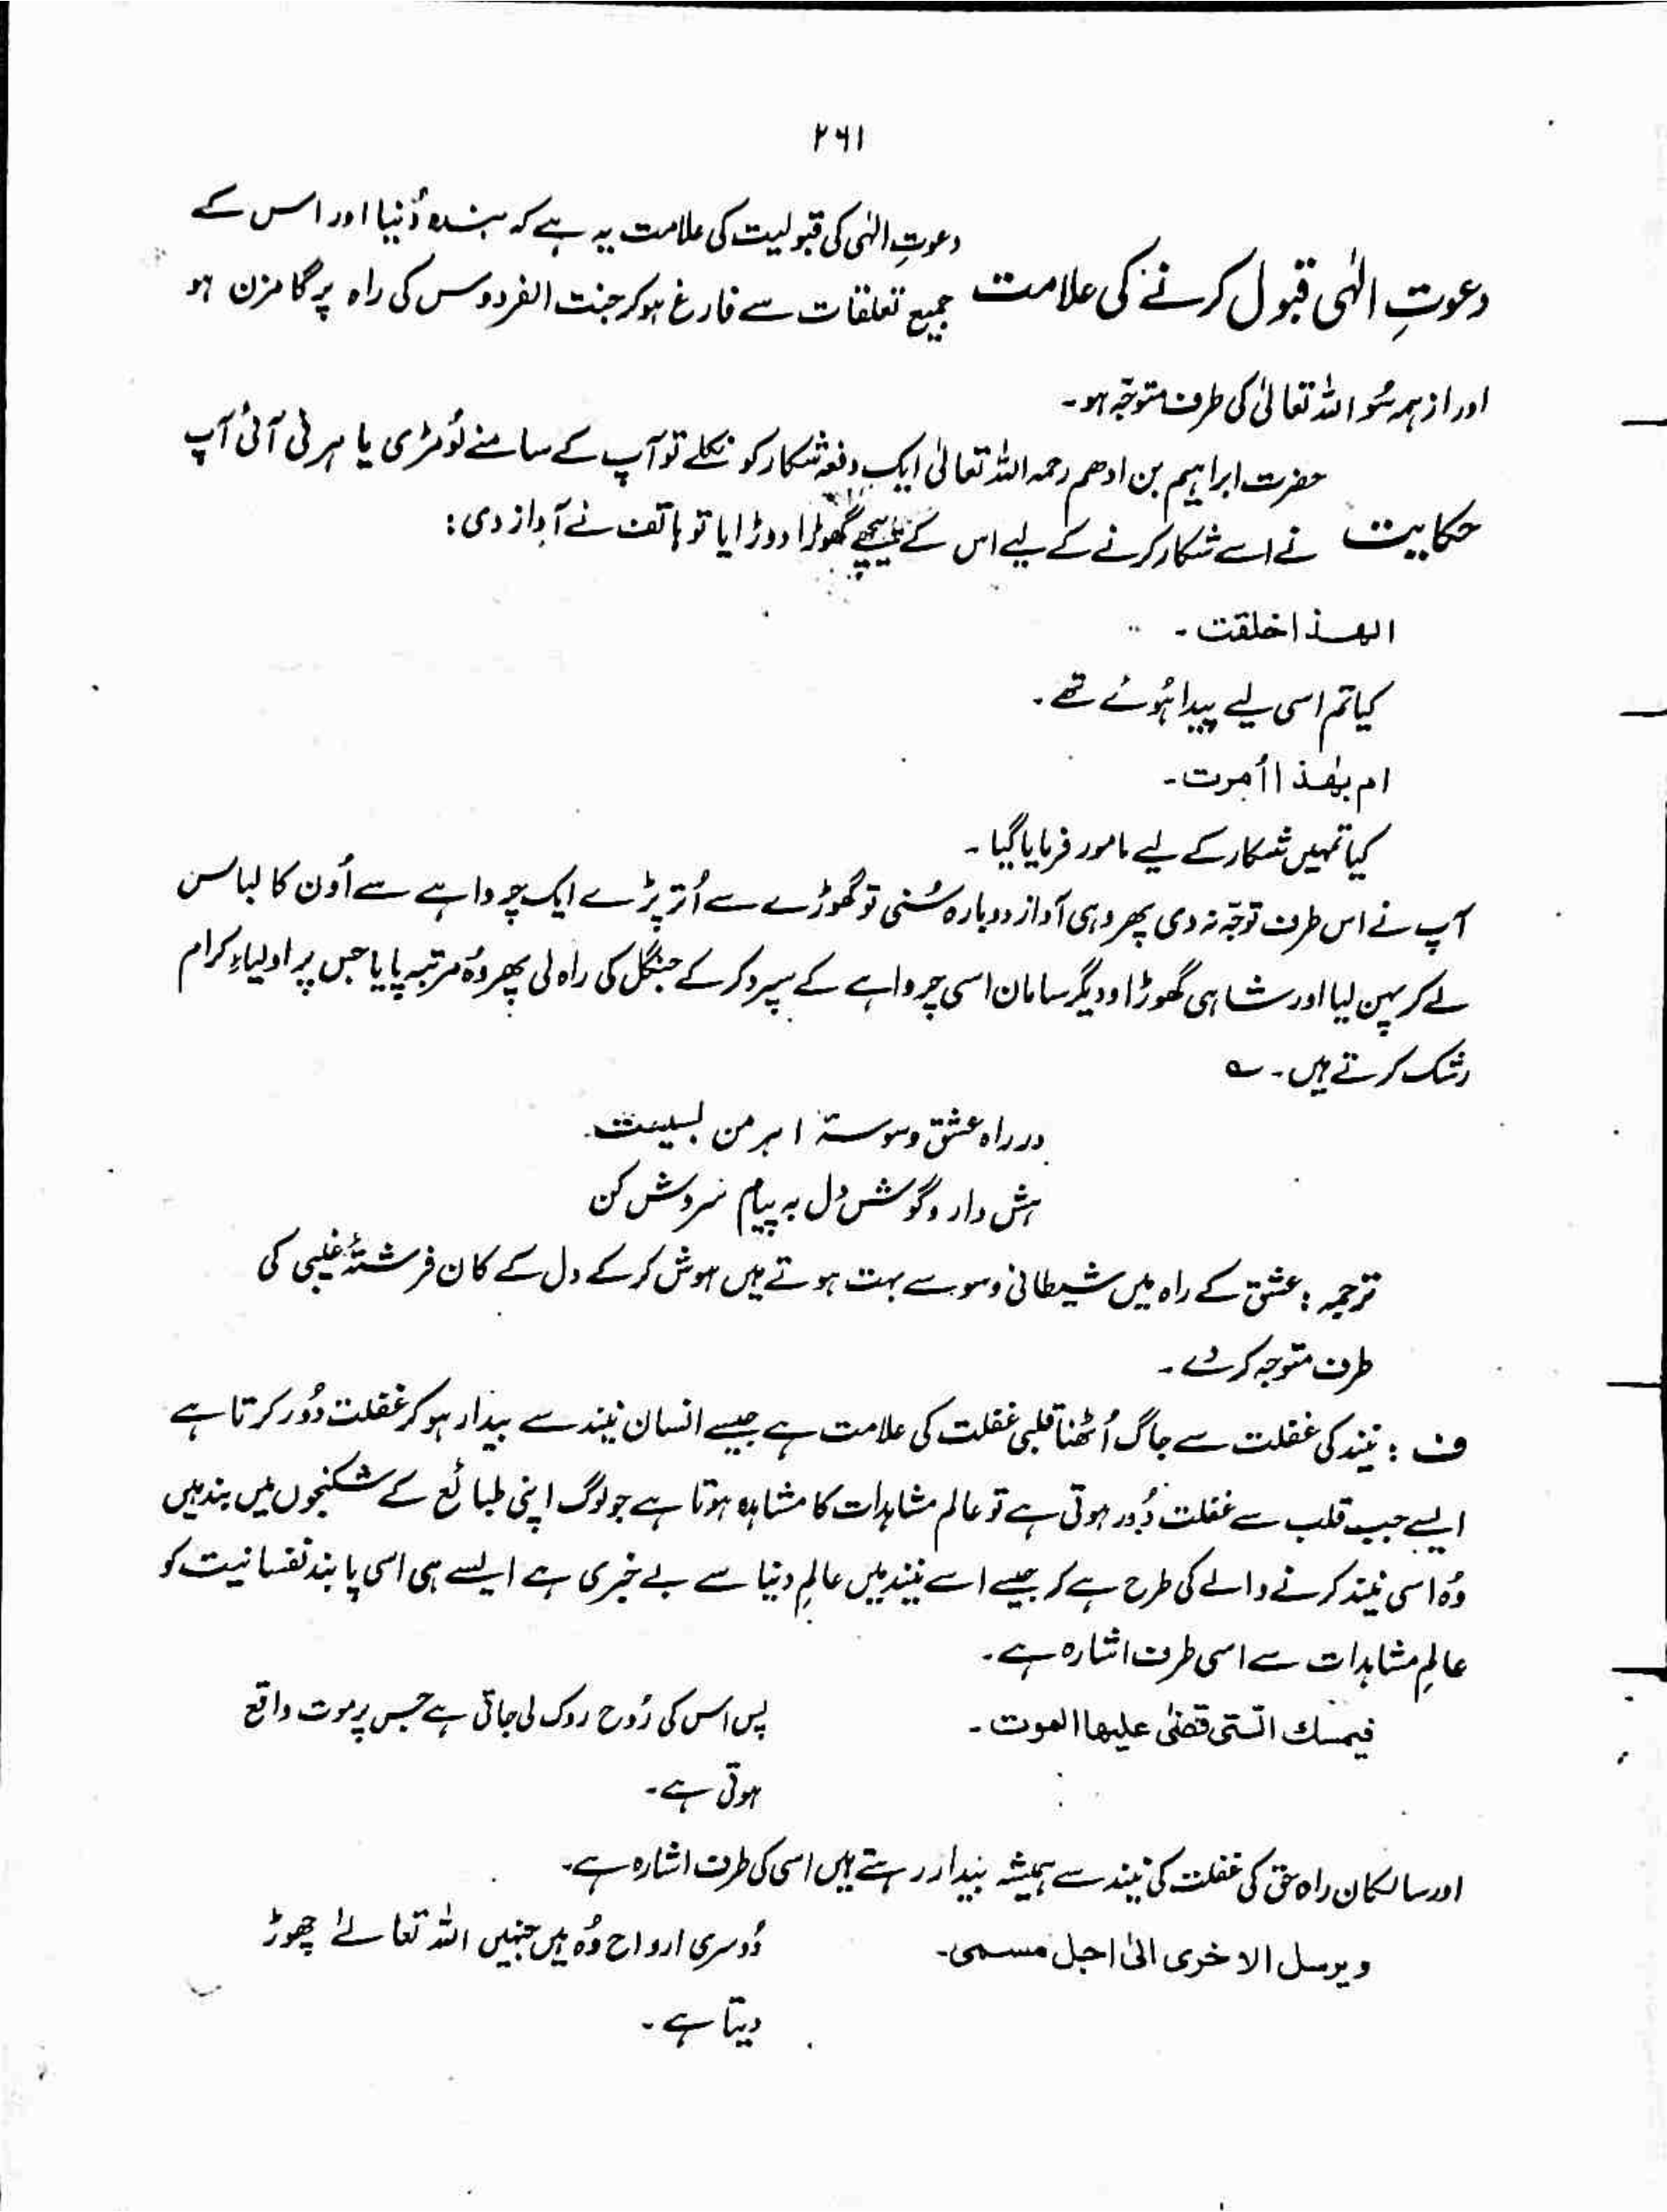 ۲۶۱
دعوتِ الٰہی قبول کرنے کی علامت
دعوتِ الٰہی کی قبولیت کی علامت یہ ہے کہ بندہ دُنیا اور اس کے
جمیع تعلقات سے فارغ ہو کر جنت الفردوس کی راہ پر گامزن ہو
اور از ہمہ سُو اللہ تعالیٰ کی طرف متوجّہ ہو۔
حکایت
حضرت ابراہیم بن ادھم رحمہ اللہ تعالیٰ ایک دفعہ شکار کو نکلے تو آپ کے سامنے لُومڑی یا ہرنی آئی آپ
نے اسے شکار کرنے کے لیے اس کے پیچھے گھوڑا دوڑایا تو ہاتف نے آواز دی:
الھذا خلقت۔
کیا تم اسی لیے پیدا ہُوئے تھے۔
ام بھٰذا اُمرت۔
کیا تمہیں شکار کے لیے مامور فرمایا گیا۔
آپ نے اس طرف توجّہ نہ دی پھر وہی آواز دوبارہ سُنی تو گھوڑے سے اُتر پڑے ایک چرواہے سے اُون کا لباس
لے کر پہن لیا اور شاہی گھوڑا ودیگر سامان اسی چرواہے کے سپرد کر کے جنگل کی راہ لی پھر وُہ مرتبہ پایا جس پر اولیاءِ کرام
رشک کرتے ہیں۔ ؎
در راہ عشق وسوسۂ اہرمن بسیست
ہش دار و گوش دل بہ پیام سروش کن
ترجمہ: عشق کے راہ میں شیطانی وسوسے بہت ہوتے ہیں ہوش کر کے دل کے کان فرشتۂ غیبی کی
طرف متوجہ کر دے۔
ف: نیند کی غفلت سے جاگ اُٹھنا قلبی غفلت کی علامت ہے جیسے انسان نیند سے بیدار ہو کر غفلت دُور کرتا ہے
ایسے جب قلب سے غفلت دُور ہوتی ہے تو عالم مشاہدات کا مشاہدہ ہوتا ہے جو لوگ اپنی طبائع کے شکنجوں میں بند ہیں
وُہ اسی نیند کرنے والے کی طرح ہے کہ جیسے اسے نیند میں عالمِ دنیا سے بے خبری ہے ایسے ہی اسی پابند نفسانیت کو
عالمِ مشاہدات سے اسی طرف اشارہ ہے۔
فیمسك الّتی قضیٰ علیھا الموت۔
پس اس کی رُوح روک لی جاتی ہے جس پر موت واقع
ہوتی ہے۔
اور سالکان راہ حق کی غفلت کی نیند سے ہمیشہ بیدار رہتے ہیں اسی کی طرف اشارہ ہے۔
ویرسل الاخری الیٰ اجل مسمی۔
دُوسری ارواح وُہ ہیں جنہیں اللہ تعالےٰ چھوڑ
دیتا ہے۔